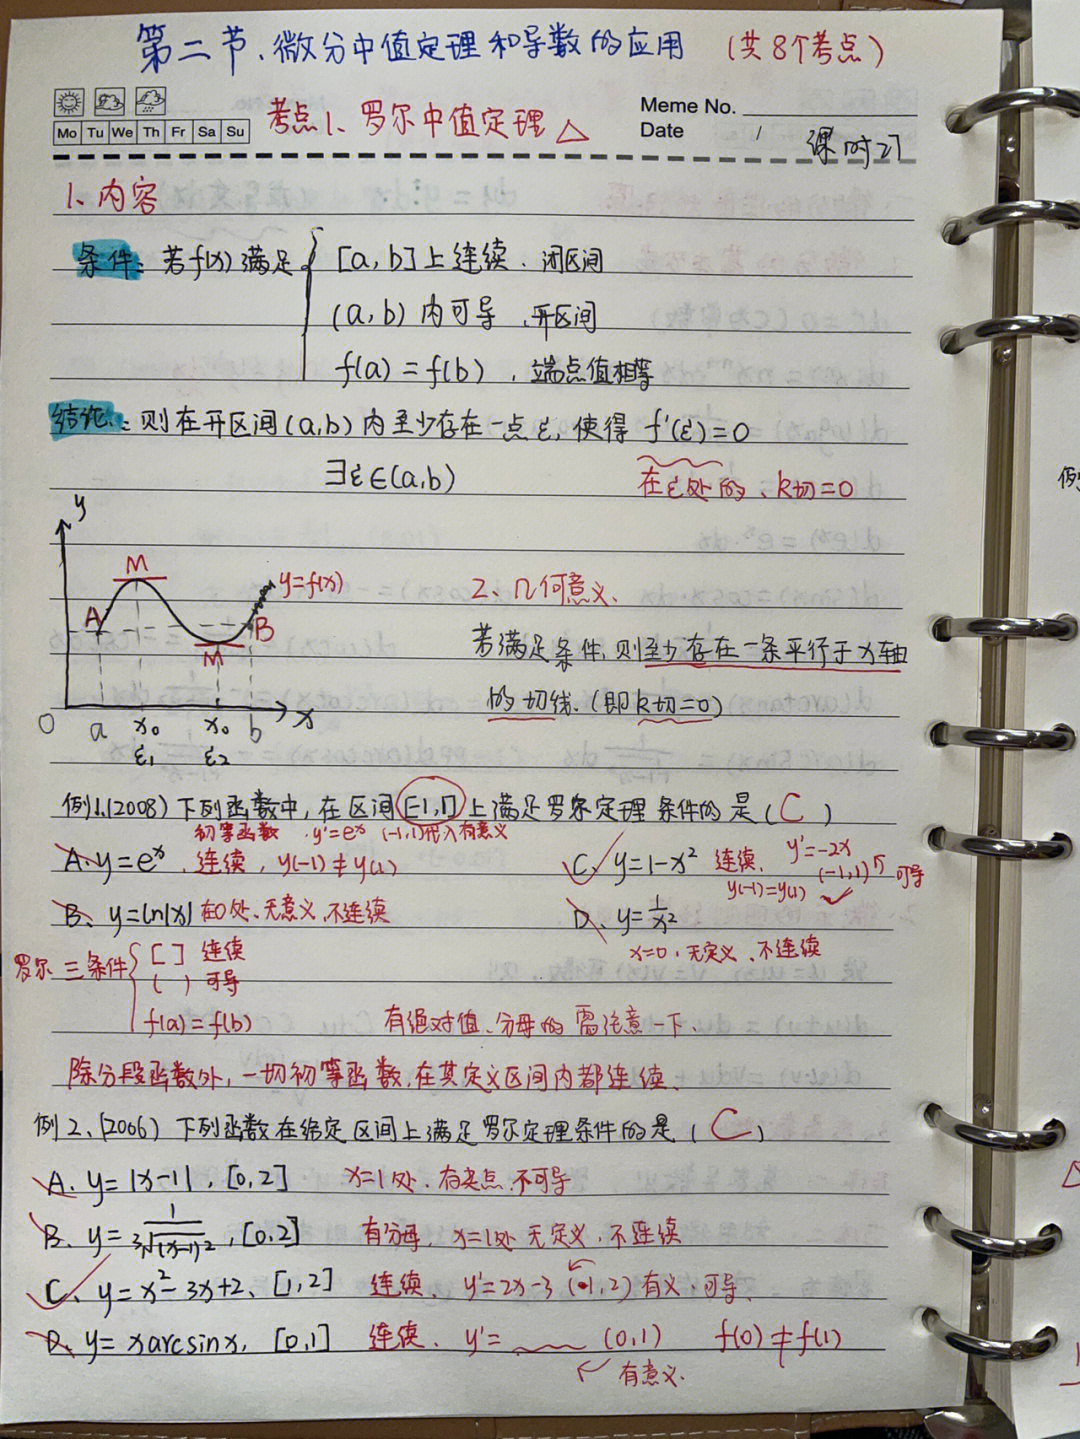 第二节、微分中值定理和导数的应用 (共8个考点)
Mo Tu We Th Fr Sa Su
考点1、罗尔中值定理 △
Meme No.
Date /
课时27
1、内容
条件：若f(x)满足 { [a,b]上连续、闭区间
(a,b)内可导、开区间
f(a)=f(b)、端点值相等
结论：则在开区间(a,b)内至少存在一点ξ,使得 f'(ξ)=0
∃ξ∈(a,b)
在ξ处的、k切=0
y
M
y=f(x)
A
B
M
0 a x₀ x₀ b x
ξ₁ ξ₂
2、几何意义、
若满足条件,则至少存在一条平行于x轴
的切线.(即k切=0)
例1.(2008)下列函数中,在区间[-1,1]上满足罗尔定理条件的是(C)
初等函数、y'=eˣ (-1,1)代入有意义
A、y=eˣ、连续，y(-1)≠y(1)
C、y=1-x² 连续、y'=-2x
(-1,1)内可导
y(-1)=y(1) ✓
B、y=ln|x| 在0处、无意义、不连续
D、y=1/x²
x=0、无定义、不连续
罗尔三条件 { [ ] 连续
( ) 可导
f(a)=f(b)
有绝对值、分母的需注意一下、
除分段函数外,一切初等函数,在其定义区间内都连续、
例2、(2006)下列函数在给定区间上满足罗尔定理条件的是(C)
A、y=|x-1|,[0,2] x=1处、有尖点、不可导
B、y=1/³√(x-1)²,[0,2] 有分母,x=1处无定义、不连续
C、y=x²-3x+2、[1,2] 连续、y'=2x-3 (1,2)有义、可导、
D、y=xarcsinx,[0,1] 连续、y'= (0,1) f(0)≠f(1)
有意义、
例